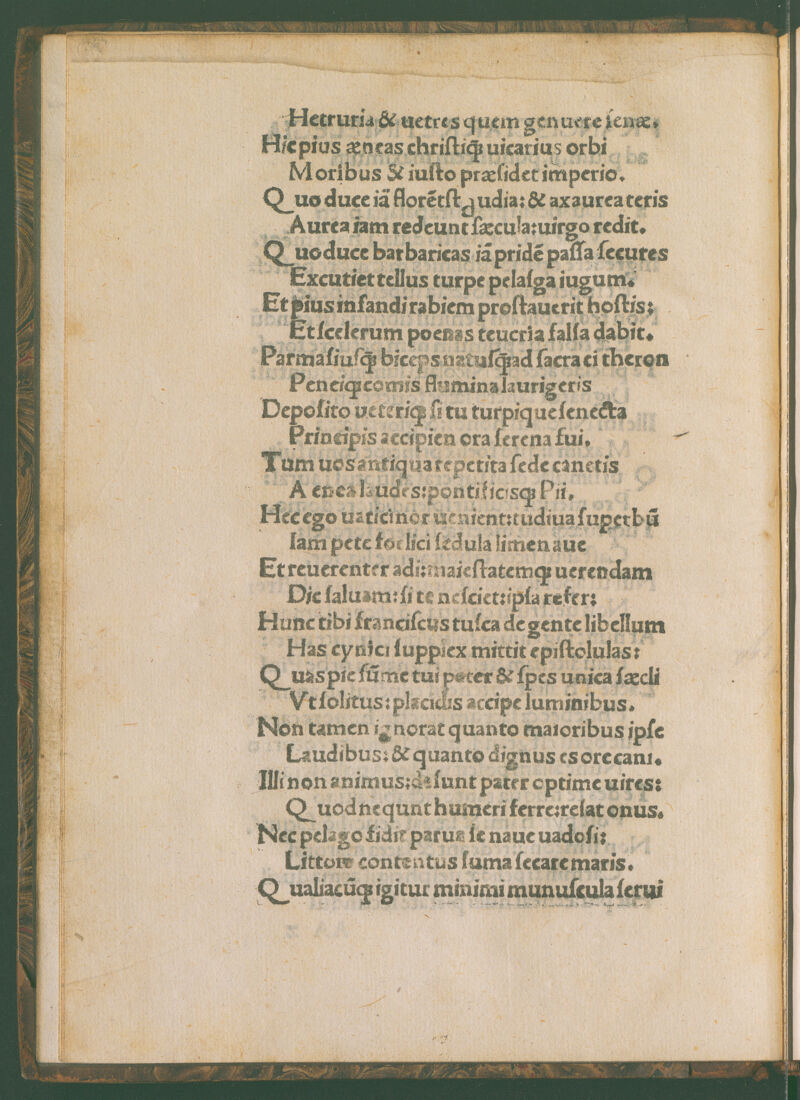 Hetruria & uetres quem genuere senæ.
Hic pius æneas christiq; uicarius orbi
Moribus & iusto præsidet imperio.
Quo duce iã florẽt studia: & ax aurea teris
Aurea iam redeunt sæcula: uirgo redit.
Quo duce barbaricas iã pridẽ passa secures
Excutiet tellus turpe pelasga iugum.
Et pius infandi rabiem prostauerit hostis;
Et scelerum poenas teucria falsa dabit.
Parnnasiusq; biceps natusq; ad sacra citheron
Peneiq; comis flumina laurigeris
Deposito ueteriq; situ turpique senecta
Principis accipien ora serena sui.
Tum uos antiqua repetita sede canetis
Aenea laudes: pontificisq; Pii.
Hec ego uaticinor uenient: tu diua supetbũ
Iam pete foelici sedula limen aue
Et reuerenter adi: maiestatemq; uerendam
Dic saluam: si te nesciet: ipsa refer:
Hunc tibi franciscus tusca de gente libellum
Has cynici supplex mittit epistolulas:
Quas pie sũme tui pater & spes unica sæcli
Vt solitus: placidis accipe luminibus.
Non tamen ignorat quanto maioribus ipse
Laudibus: & quanto dignus es ore cani.
Illi non animus: desunt pater optime uires:
Quod nequnt humeri ferre: resat onus.
Nec pelago fidit paruæ se naue uadosi:
Littore contentus suma secare maris.
Qualiacũq; igitur minimi munuscula serui